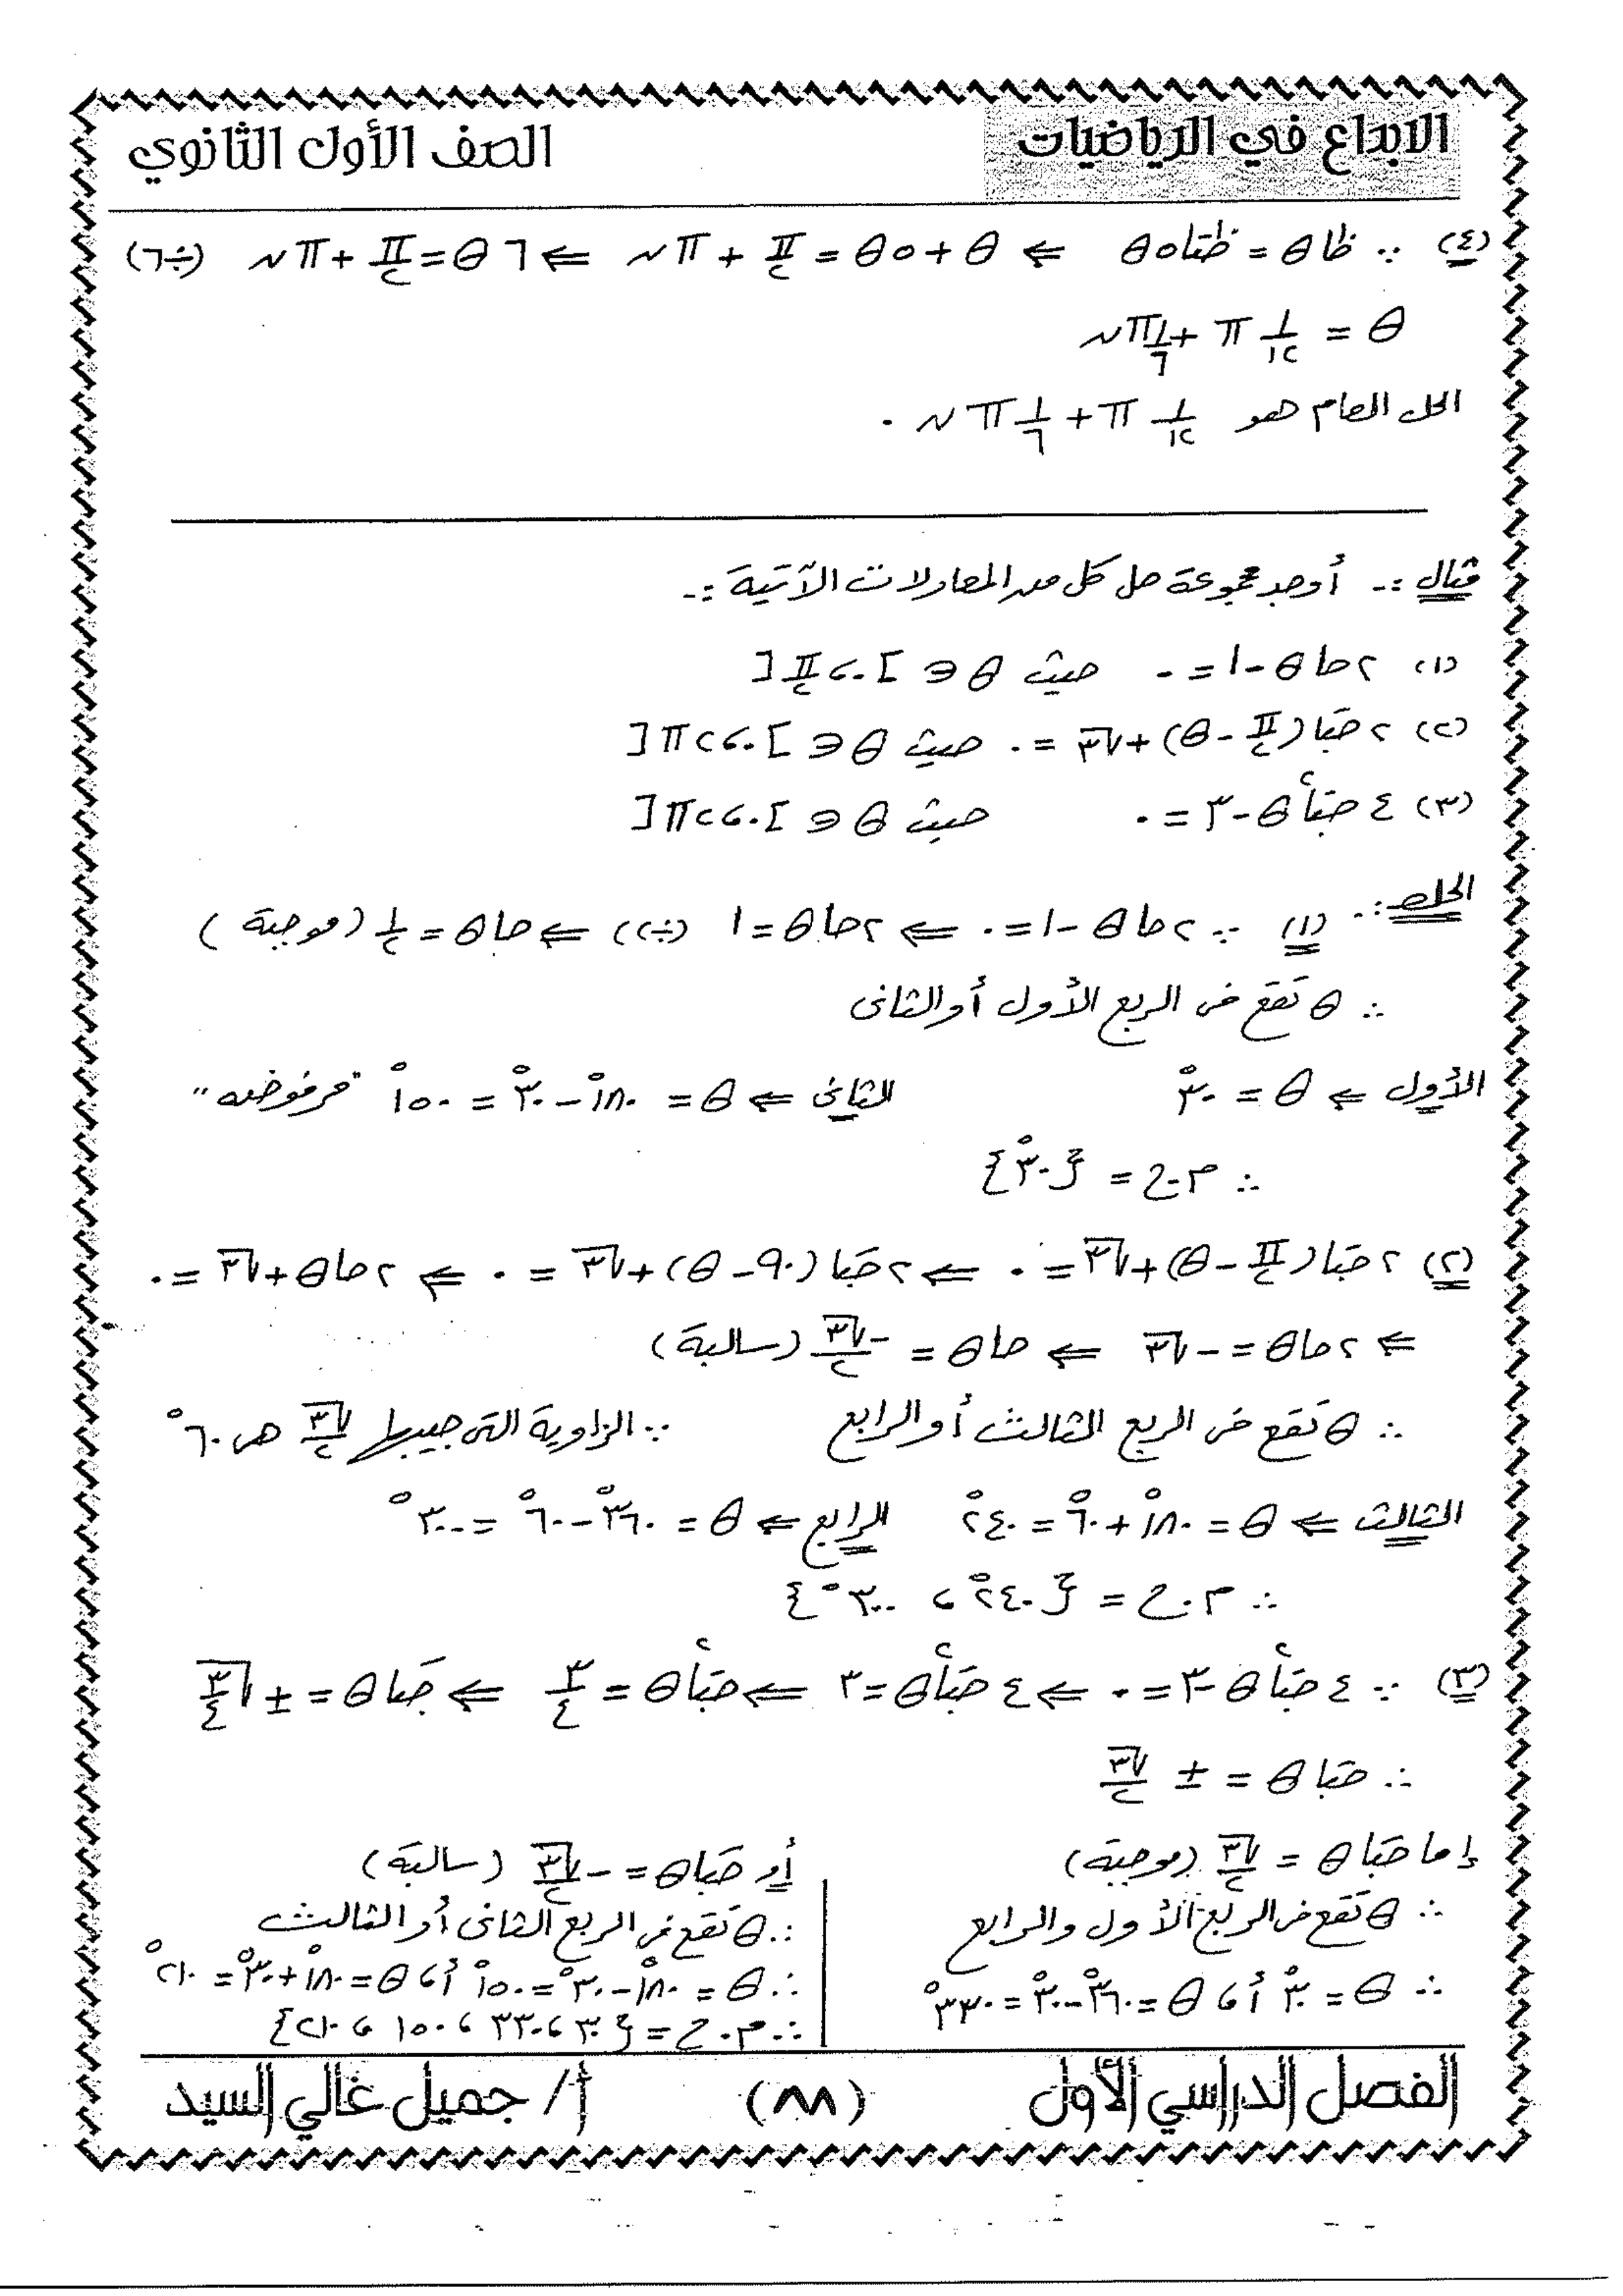 الابداع في الرياضيات
الصف الأول الثانوي
(٤) ∵ طا θ = طتا ٥θ ⇐ θ + ٥θ = π/٢ + π ن ⇐ ٦θ = π/٢ + π ن (÷٦)
θ = ١/١٢ π + ١/٦ π ن
الحل العام هو ١/١٢ π + ١/٦ π ن .
مثال :- أوجد مجموعة حل كل من المعادلات الآتية :-
(١) ٢ حا θ - ١ = ٠ حيث θ ∈ ]٠ ، π/٢[
(٢) ٢ حتا (π/٢ - θ) + √٣ = ٠ حيث θ ∈ ]٠ ، ٢π[
(٣) ٤ حتا٢ θ - ٣ = ٠ حيث θ ∈ ]٠ ، ٢π[
الحل :- (١) ∵ ٢ حا θ - ١ = ٠ ⇐ ٢ حا θ = ١ (÷٢) ⇐ حا θ = ١/٢ (موجبة)
∴ θ تقع فى الربع الأول أو الثانى
الأول ⇐ θ = ٣٠° الثانى ⇐ θ = ١٨٠° - ٣٠° = ١٥٠° "مرفوضه"
∴ م.ح = {٣٠°}
(٢) ٢ حتا (π/٢ - θ) + √٣ = ٠ ⇐ ٢ حتا (٩٠ - θ) + √٣ = ٠ ⇐ ٢ حا θ + √٣ = ٠
⇐ ٢ حا θ = -√٣ ⇐ حا θ = -√٣/٢ (سالبة)
∴ θ تقع فى الربع الثالث أو الرابع ∵ الزاوية التى جيبها √٣/٢ هى ٦٠°
الثالث ⇐ θ = ١٨٠° + ٦٠° = ٢٤٠° الرابع ⇐ θ = ٣٦٠° - ٦٠° = ٣٠٠°
∴ م.ح = {٢٤٠° ، ٣٠٠°}
(٣) ∵ ٤ حتا٢ θ - ٣ = ٠ ⇐ ٤ حتا٢ θ = ٣ ⇐ حتا٢ θ = ٣/٤ ⇐ حتا θ = ± √(٣/٤)
∴ حتا θ = ± √٣/٢
إما حتا θ = √٣/٢ (موجبة)
∴ θ تقع فى الربع الأول والرابع
∴ θ = ٣٠° أ، θ = ٣٦٠° - ٣٠° = ٣٣٠°
أو حتا θ = -√٣/٢ (سالبة)
∴ θ تقع فى الربع الثانى أو الثالث
∴ θ = ١٨٠° - ٣٠° = ١٥٠° أ، θ = ١٨٠° + ٣٠° = ٢١٠°
∴ م.ح = {٣٠ ، ٣٣٠ ، ١٥٠ ، ٢١٠}
الفصل الدراسي الأول
(٨٨)
أ/ جميل غالي السيد